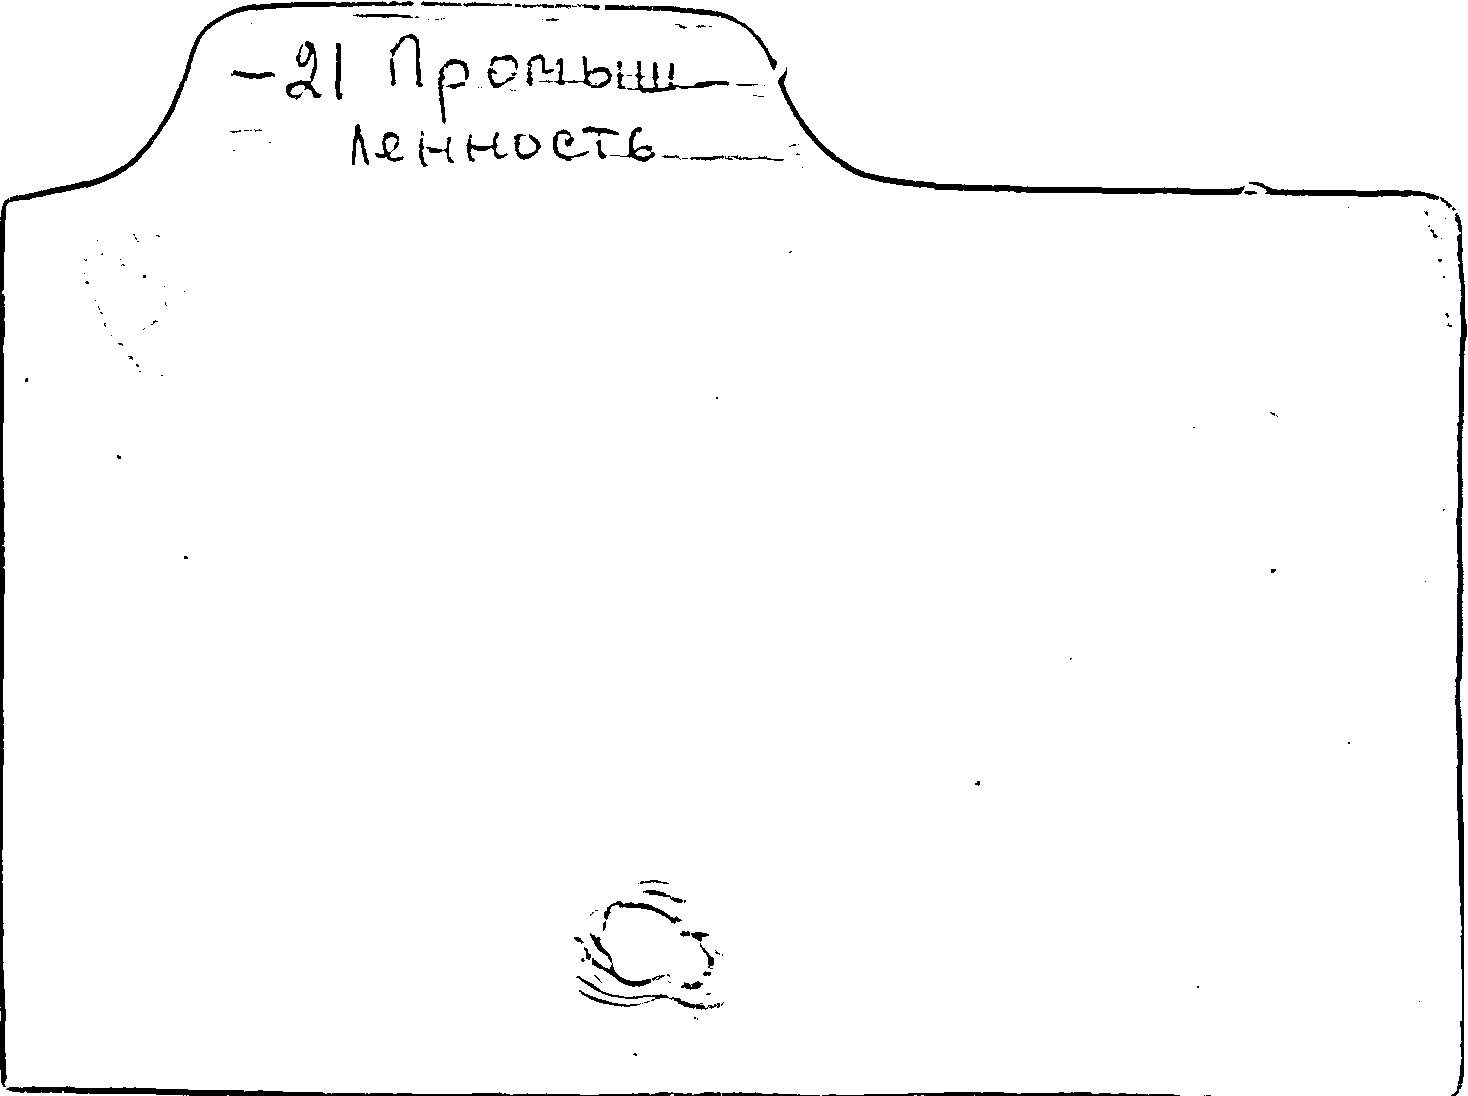 -21 Промыш
ленность